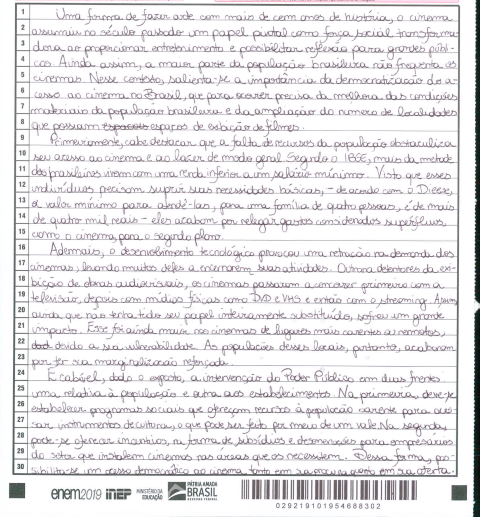 1 Uma forma de fazer arte com mais de cem anos de história, o cinema
2 assumiu no século passado um papel pivotal como força social transforma-
3 dora ao proporcionar entretenimento e possibilitar reflexão para grandes públi-
4 cos. Ainda assim, a maior parte da população brasileira não frequenta os
5 cinemas. Nesse contexto, salienta-se a importância da democratização do a-
6 cesso ao cinema no Brasil, que para ocorrer precisa da melhora das condições
7 materiais da população brasileira e da ampliação do número de localidades
8 que possuam espaços espaços de exibição de filmes.
9 Primeiramente, cabe destacar que a falta de recursos da população obstaculiza
10 seu acesso ao cinema e ao lazer de modo geral. Segundo o IBGE, mais da metade
11 dos brasileiros vivem com uma renda inferior a um salário mínimo. Visto que esses
12 indivíduos precisam suprir suas necessidades básicas, - de acordo com o Dieese,
13 o valor mínimo para atendê-las, para uma família de quatro pessoas, é de mais
14 de quatro mil reais - eles acabam por relegar gastos considerados supérfluos,
15 como o cinema, para o segundo plano.
16 Ademais, o desenvolvimento tecnológico provocou uma retração na demanda dos
17 cinemas, levando muitos deles a encerrarem suas atividades. Outrora detentores da exi-
18 bição de obras audiovisuais, os cinemas passaram a concorrer primeiro com a
19 televisão, depois com mídias físicas como DVD e VHS e então com o streaming.
20 ainda que não tenha tido seu papel inteiramente substituído, sofreu um grande
21 impacto. Esse foi ainda maior nos cinemas de lugares mais carentes e remotos,
22 devido a sua vulnerabilidade. As populações desses locais, portanto, acabaram
23 por ter sua marginalização reforçada.
24 É cabível, dado o exposto, a intervenção do Poder Público em duas frentes
25 uma relativa à população e outra aos estabelecimentos. Na primeira, deve-se
26 estabelecer programas sociais que ofereçam recursos à população carente para aces-
27 sar instrumentos de cultura, o que pode ser feito por meio de um vale. Na segunda,
28 pode-se oferecer incentivos, na forma de subsídios e desonerações para empresários
29 do setor que instalem cinemas nas áreas que os necessitem. Dessa forma, pos-
30 sibilita-se um acesso democrático ao cinema, tanto em sua procura quanto em sua oferta.
enem2019 inep MINISTÉRIO DA EDUCAÇÃO PÁTRIA AMADA BRASIL GOVERNO FEDERAL
0292191019546883​02